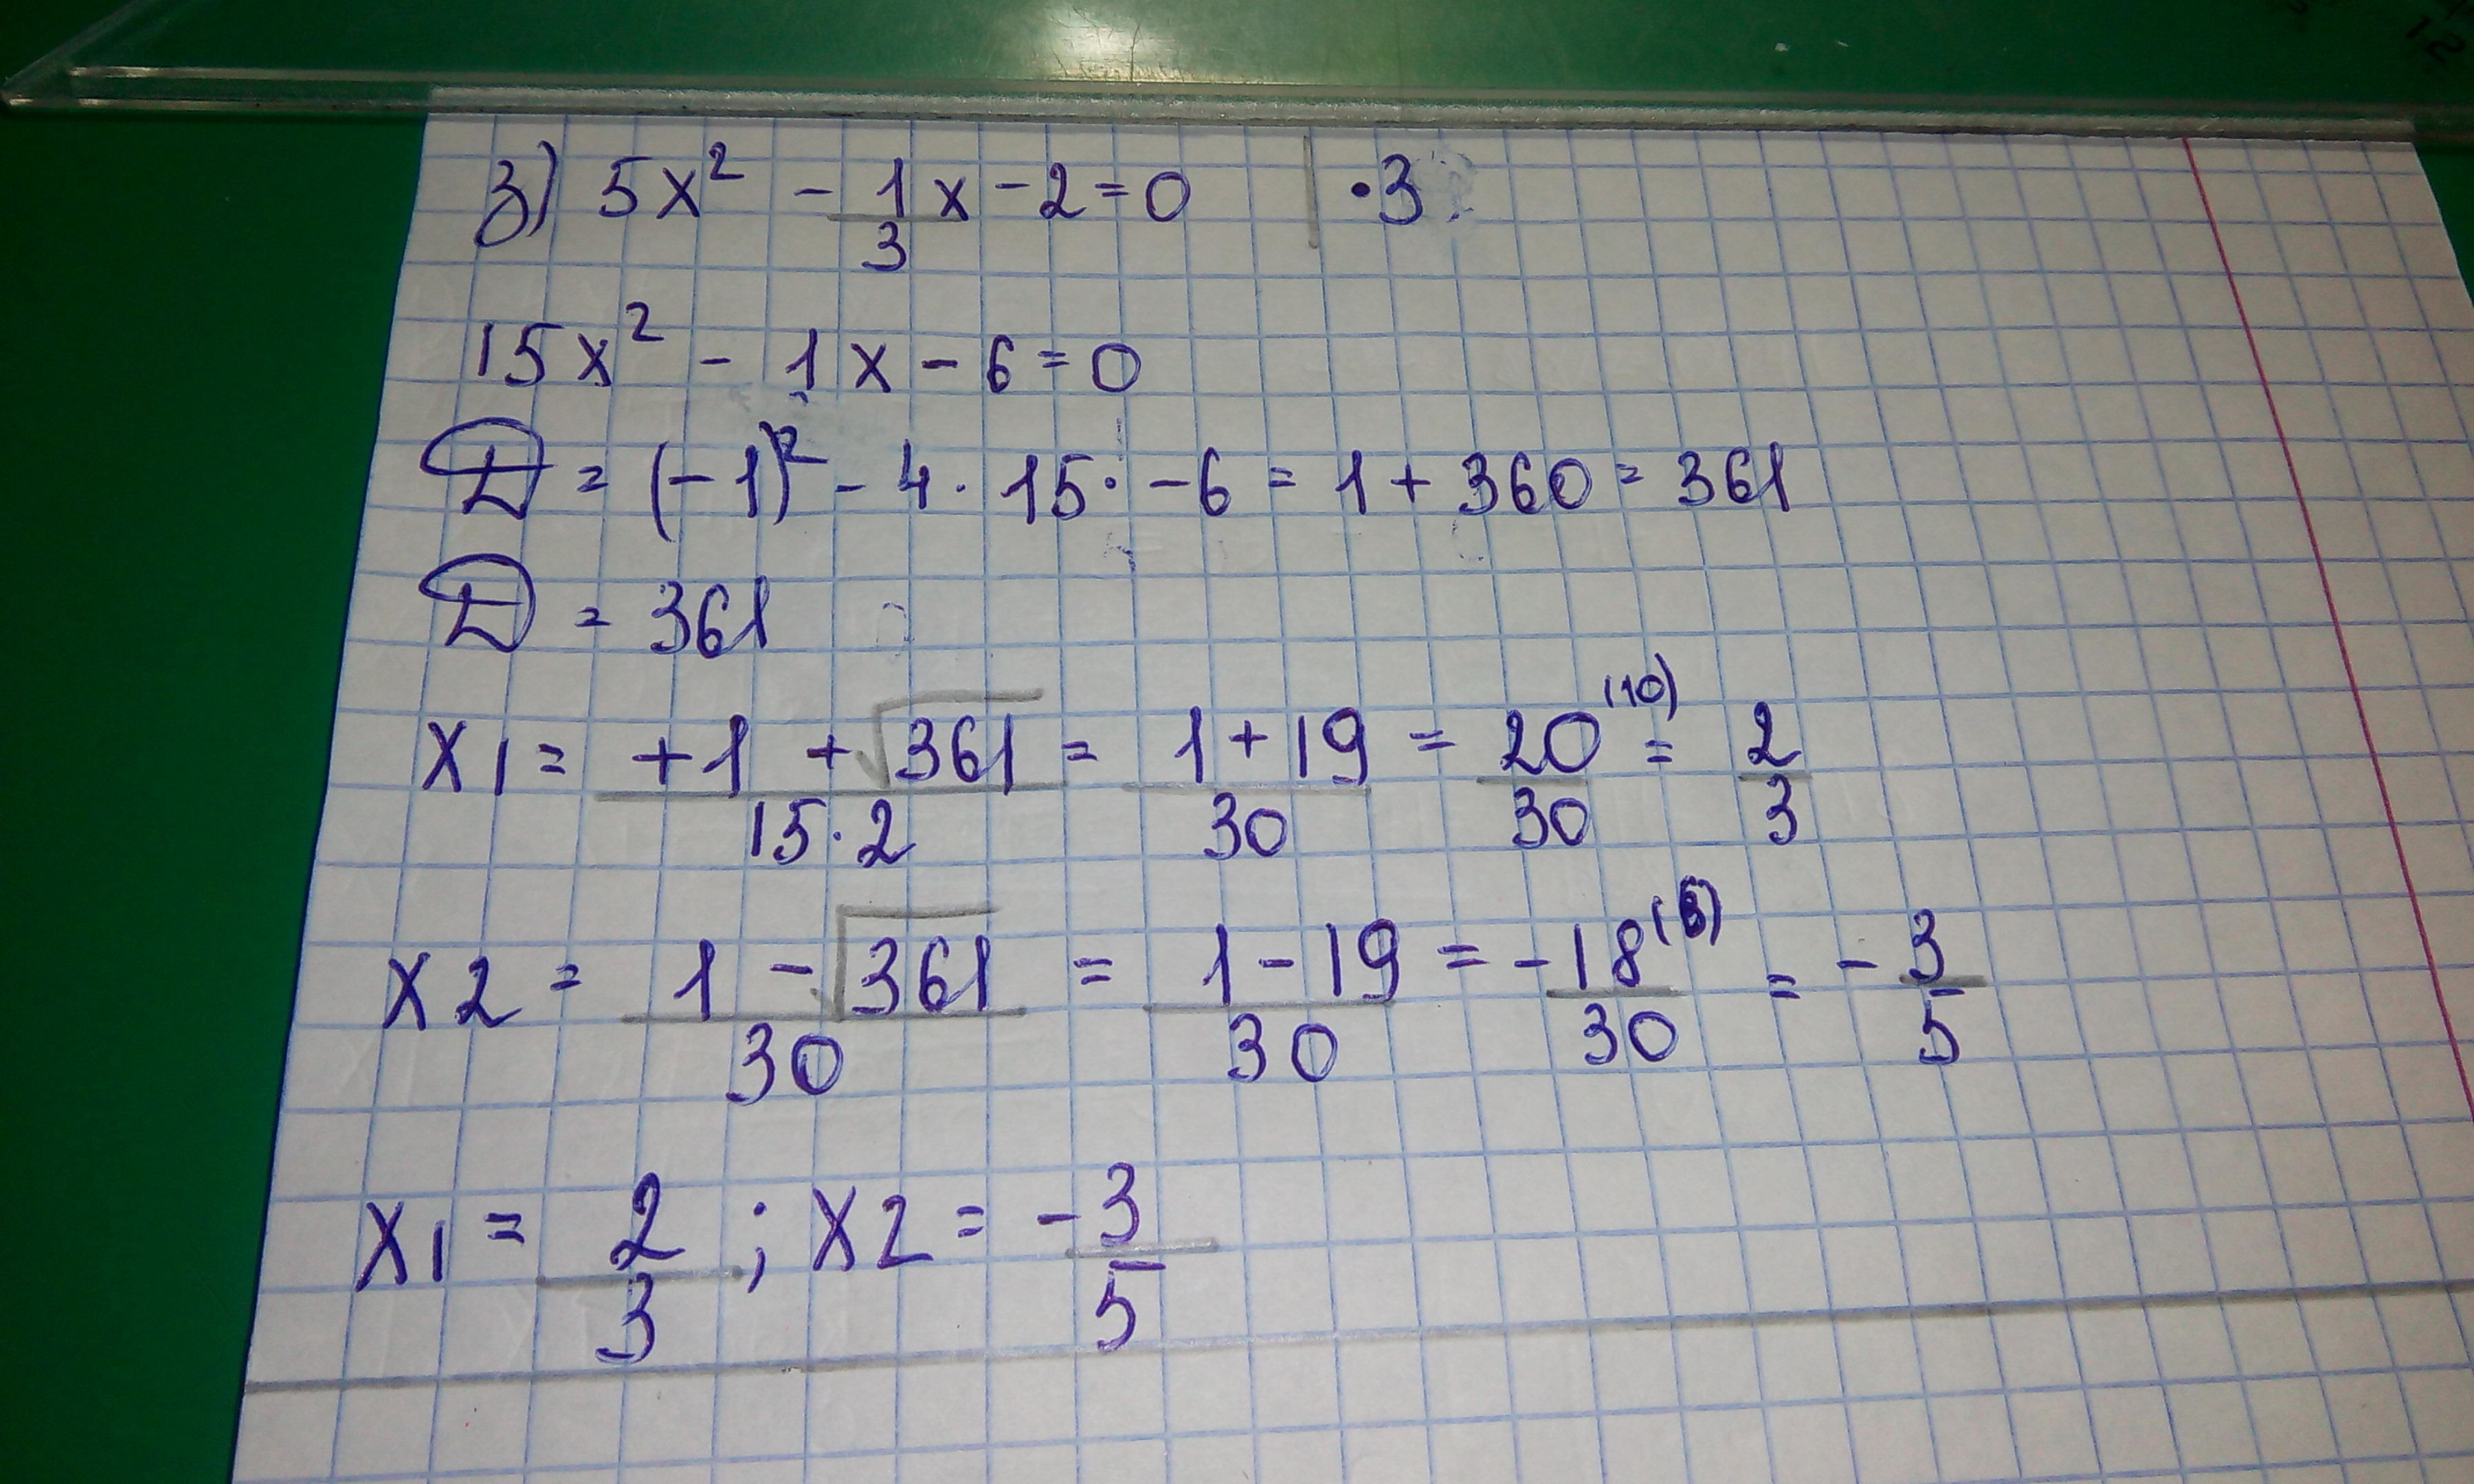 з) 5x² - 1/3 x - 2 = 0 | · 3
15x² - 1x - 6 = 0
D = (-1)² - 4 · 15 · -6 = 1 + 360 = 361
D = 361
x1 = +1 + √361 / 15 · 2 = 1 + 19 / 30 = 20 (10) / 30 = 2/3
x2 = 1 - √361 / 30 = 1 - 19 / 30 = -18 (6) / 30 = -3/5
x1 = 2/3 ; x2 = -3/5